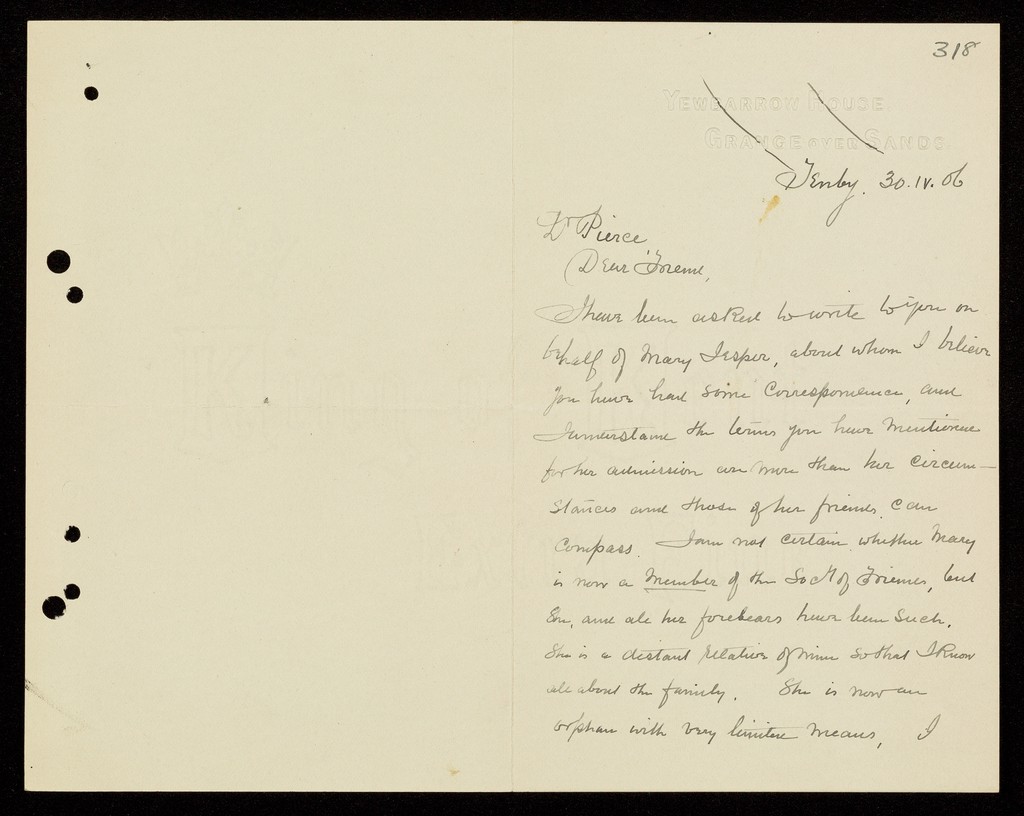 318
YEWBARROW HOUSE
GRANGE OVER SANDS.
Tenby. 30.IV.06
Dr Pierce
Dear Friend,
I have been asked to write to you on
behalf of Mary Jesper, about whom I believe
you have had some Correspondence, and
I understand the terms you have Mentioned
for her admission are more than her circum-
stances and those of her friends, can
compass. I am not certain whether Mary
is now a Member of the Socy of Friends, but
and all her forebears have been such.
She is a distant relative of mine so that I know
all about the family. She is now an
orphan with very limited means, I